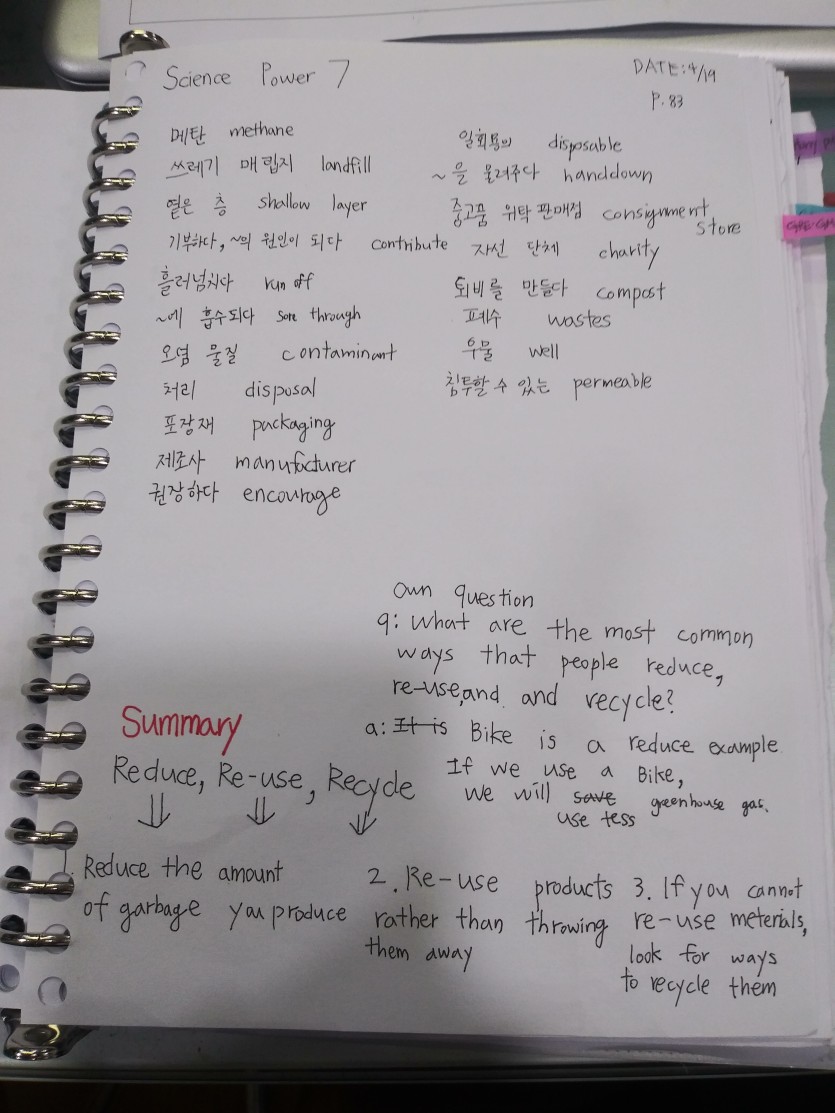 Science Power 7
DATE: 4/19
P. 83
메탄 methane
쓰레기 매립지 landfill
옅은 층 shallow layer
기부하다, ~의 원인이 되다 contribute
흘러넘치다 run off
~에 흡수되다 through
오염 물질 contaminant
처리 disposal
포장재 packaging
제조사 manufacturer
권장하다 encourage
일회용의 disposable
~을 물려주다 handdown
중고품 위탁 판매점 consignment
store
자선 단체 charity
퇴비를 만들다 compost
폐수 wastes
우물 well
침투할 수 있는 permeable
Own question
q: What are the most common
ways that people reduce,
re-use, and and recycle?
a: It is Bike is a reduce example
If we use a Bike,
we will save greenhouse gas.
use less
Summary
Reduce, Re-use, Recycle
1. Reduce the amount
of garbage you produce
2. Re-use products
rather than throwing
them away
3. If you cannot
re-use meterials,
look for ways
to recycle them